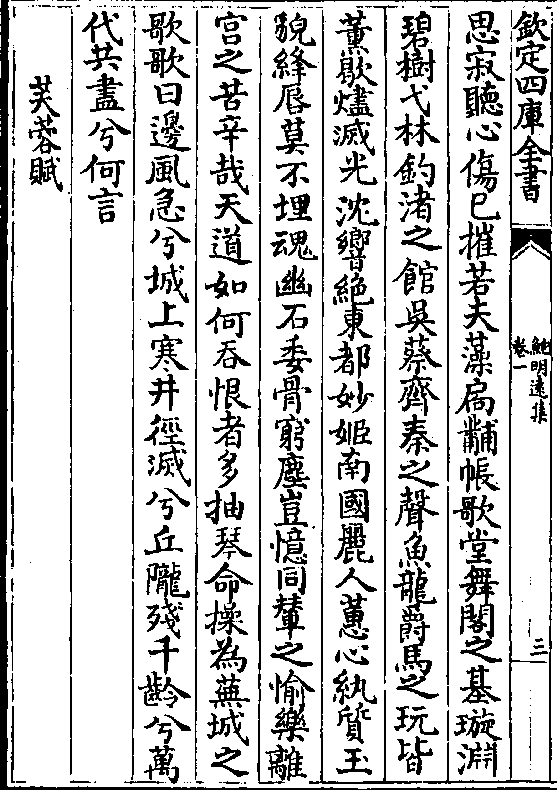 欽定四庫全書
鮑明遠集
卷一
三
思寂聽心傷已摧若夫藻扃黼帳歌堂舞閣之基璇淵
碧樹弋林釣渚之館吳蔡齊秦之聲魚龍爵馬之玩皆
薰歇燼滅光沈響絶東都妙姬南國麗人蕙心紈質玉
貌絳唇莫不埋魂幽石委骨窮塵豈憶同輦之愉樂離
宮之苦辛哉天道如何吞恨者多抽琴命操為蕪城之
歌歌曰邊風急兮城上寒井徑滅兮丘隴殘千齡兮萬
代共盡兮何言
芙蓉賦